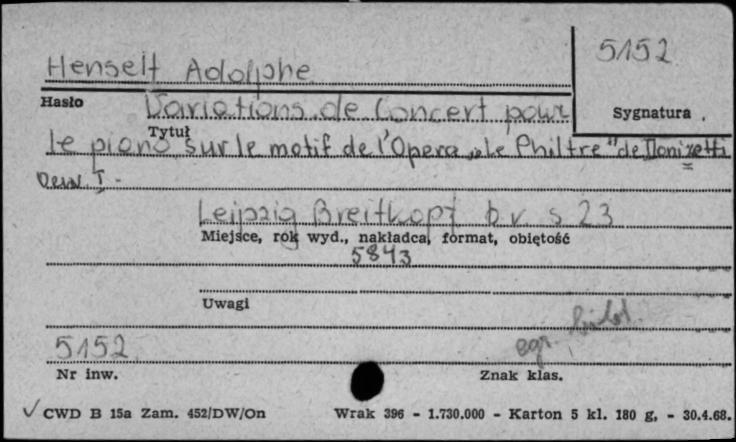 5152
Henselt Adolphe
Hasło Variations de Concert pour
Sygnatura
Tytuł
le piano sur le motif de l'Opera „le Philtre" de Donizetti
Oeuv. I.
Leipzig Breitkopf b.r. s 23
Miejsce, rok wyd., nakładca, format, objętość
5843
Uwagi
egz. bibl.
5152
Nr inw.
Znak klas.
CWD B 15a Zam. 452/DW/On Wrak 396 - 1.730.000 - Karton 5 kl. 180 g, - 30.4.68.